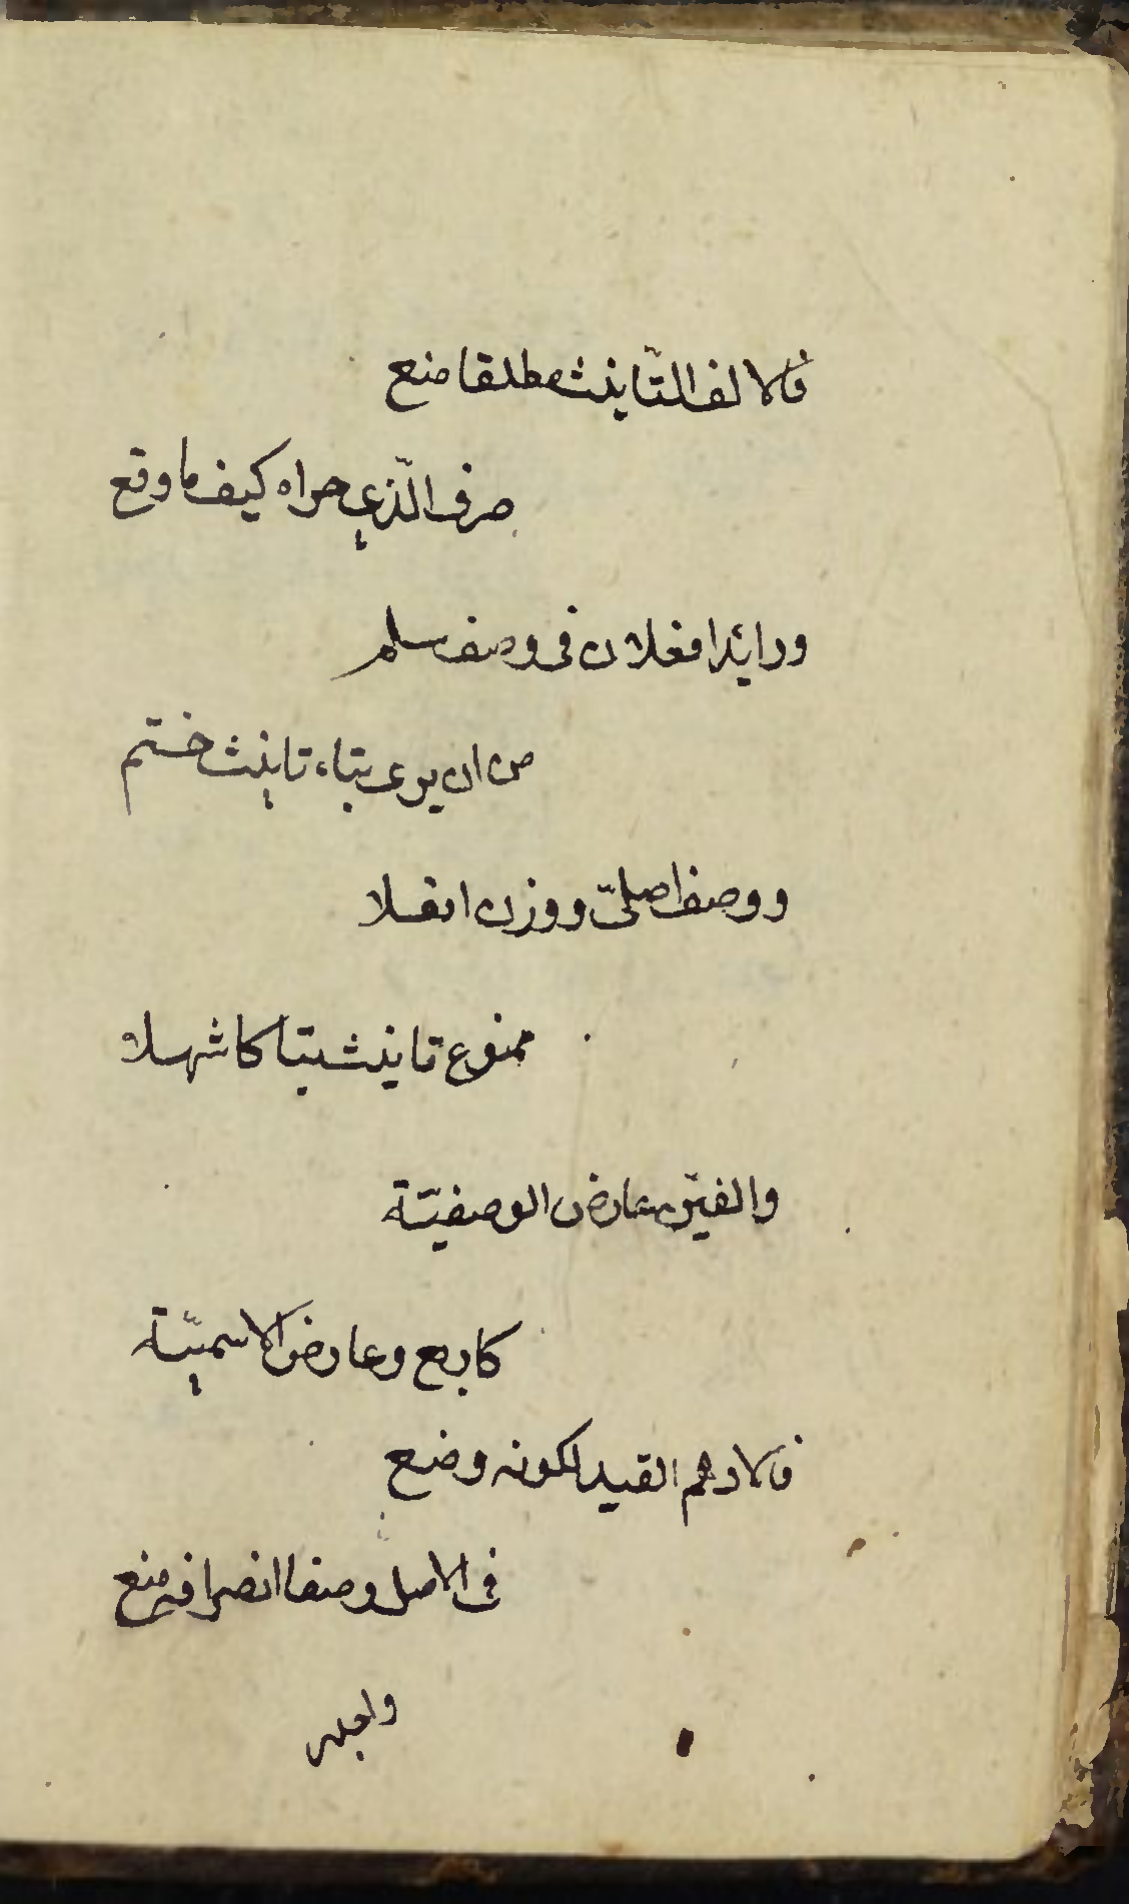 فالالف التّانيث مطلقا منع
صرف الّذي حواه كيف ما وقع
وزايدا فعلان فى وصف سلم
من ان يرى بتاء تانيث ختم
ووصف اصلىّ ووزن افعلا
ممنوع تانيث بتا كاشهلا
والغينّ عارض الوصفيّة
كاربع وعارض الاسميّة
فالادهم القيد لكونه وضع
فى الاصل وصفا انصرافه منع
واجدل